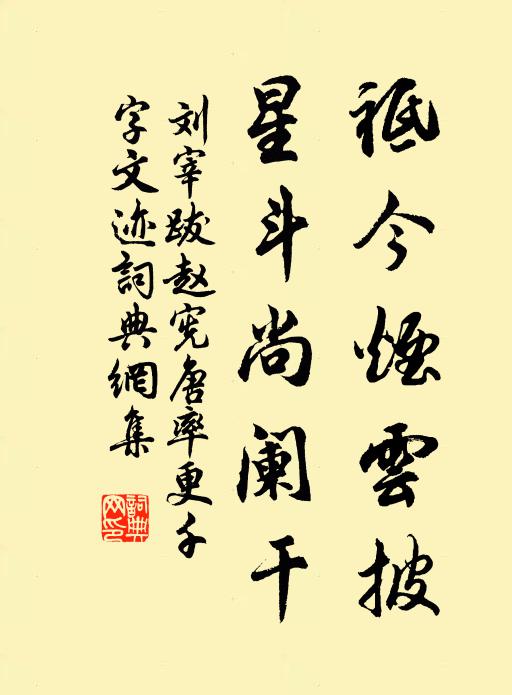 祗今煙雲披
星斗尚阑干
刘宰跋赵宪唐率更千
字文迹詞典網集
詞典網印